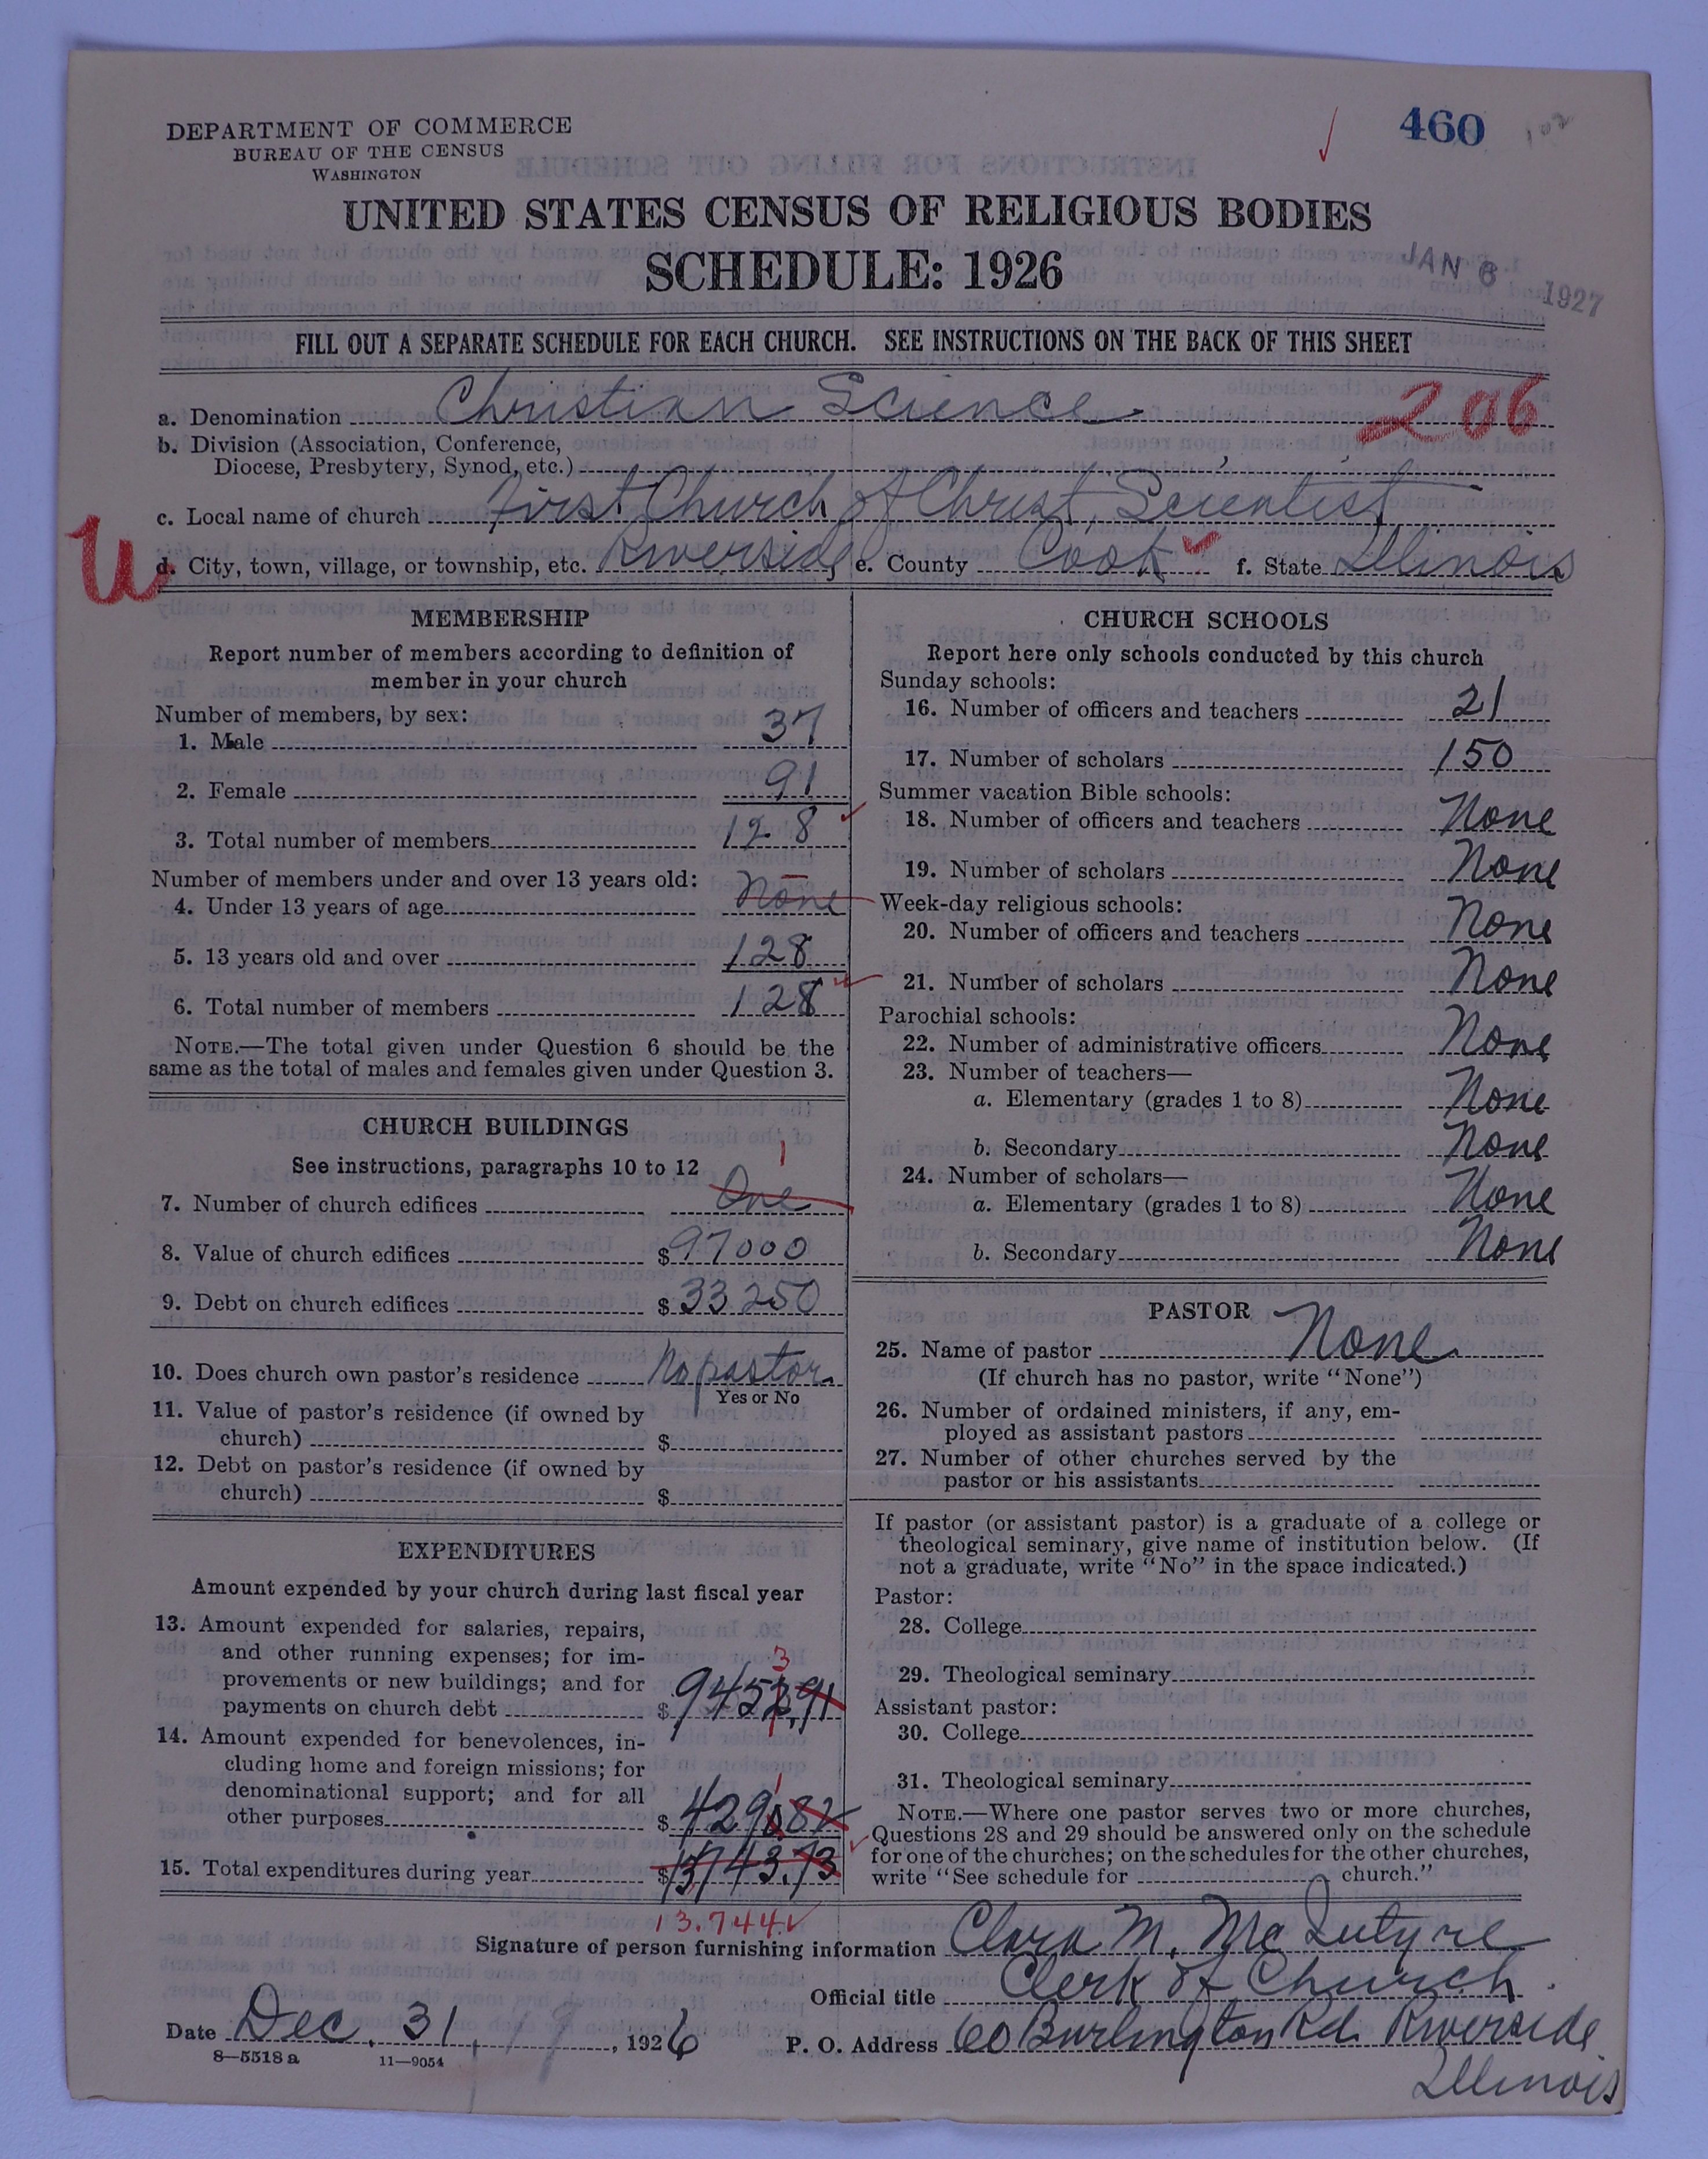 DEPARTMENT OF COMMERCE
BUREAU OF THE CENSUS
WASHINGTON
460
UNITED STATES CENSUS OF RELIGIOUS BODIES
SCHEDULE: 1926
JAN 6 1927
FILL OUT A SEPARATE SCHEDULE FOR EACH CHURCH. SEE INSTRUCTIONS ON THE BACK OF THIS SHEET
a. Denomination Christian Science 206
b. Division (Association, Conference,
Diocese, Presbytery, Synod, etc.)
c. Local name of church First Church of Christ, Scientist
U
d. City, town, village, or township, etc. Riverside e. County Cook f. State Illinois
MEMBERSHIP
Report number of members according to definition of
member in your church
Number of members, by sex:
1. Male 37
2. Female 91
3. Total number of members 128
Number of members under and over 13 years old:
4. Under 13 years of age None
5. 13 years old and over 128
6. Total number of members 128
NOTE.—The total given under Question 6 should be the
same as the total of males and females given under Question 3.
CHURCH BUILDINGS
See instructions, paragraphs 10 to 12
1
7. Number of church edifices One
8. Value of church edifices $97000
9. Debt on church edifices $33250
10. Does church own pastor's residence No pastor
Yes or No
11. Value of pastor's residence (if owned by
church) $
12. Debt on pastor's residence (if owned by
church) $
EXPENDITURES
Amount expended by your church during last fiscal year
13. Amount expended for salaries, repairs,
and other running expenses; for im-
provements or new buildings; and for
3
payments on church debt $9452.91
14. Amount expended for benevolences, in-
cluding home and foreign missions; for
denominational support; and for all
1
other purposes $4290.82
15. Total expenditures during year $13743.73
13.744
CHURCH SCHOOLS
Report here only schools conducted by this church
Sunday schools:
16. Number of officers and teachers 21
17. Number of scholars 150
Summer vacation Bible schools:
18. Number of officers and teachers None
19. Number of scholars None
Week-day religious schools:
20. Number of officers and teachers None
21. Number of scholars None
Parochial schools:
22. Number of administrative officers None
23. Number of teachers—
a. Elementary (grades 1 to 8) None
b. Secondary None
24. Number of scholars—
a. Elementary (grades 1 to 8) None
b. Secondary None
PASTOR
25. Name of pastor None
(If church has no pastor, write "None")
26. Number of ordained ministers, if any, em-
ployed as assistant pastors
27. Number of other churches served by the
pastor or his assistants
If pastor (or assistant pastor) is a graduate of a college or
theological seminary, give name of institution below. (If
not a graduate, write "No" in the space indicated.)
Pastor:
28. College
29. Theological seminary
Assistant pastor:
30. College
31. Theological seminary
NOTE.—Where one pastor serves two or more churches,
Questions 28 and 29 should be answered only on the schedule
for one of the churches; on the schedules for the other churches,
write "See schedule for church."
Signature of person furnishing information Clara M. McIntyre
Official title Clerk of Church
Date Dec. 31, 1926
P. O. Address 60 Burlington Rd. Riverside
Illinois
8—5518 a 11—9054